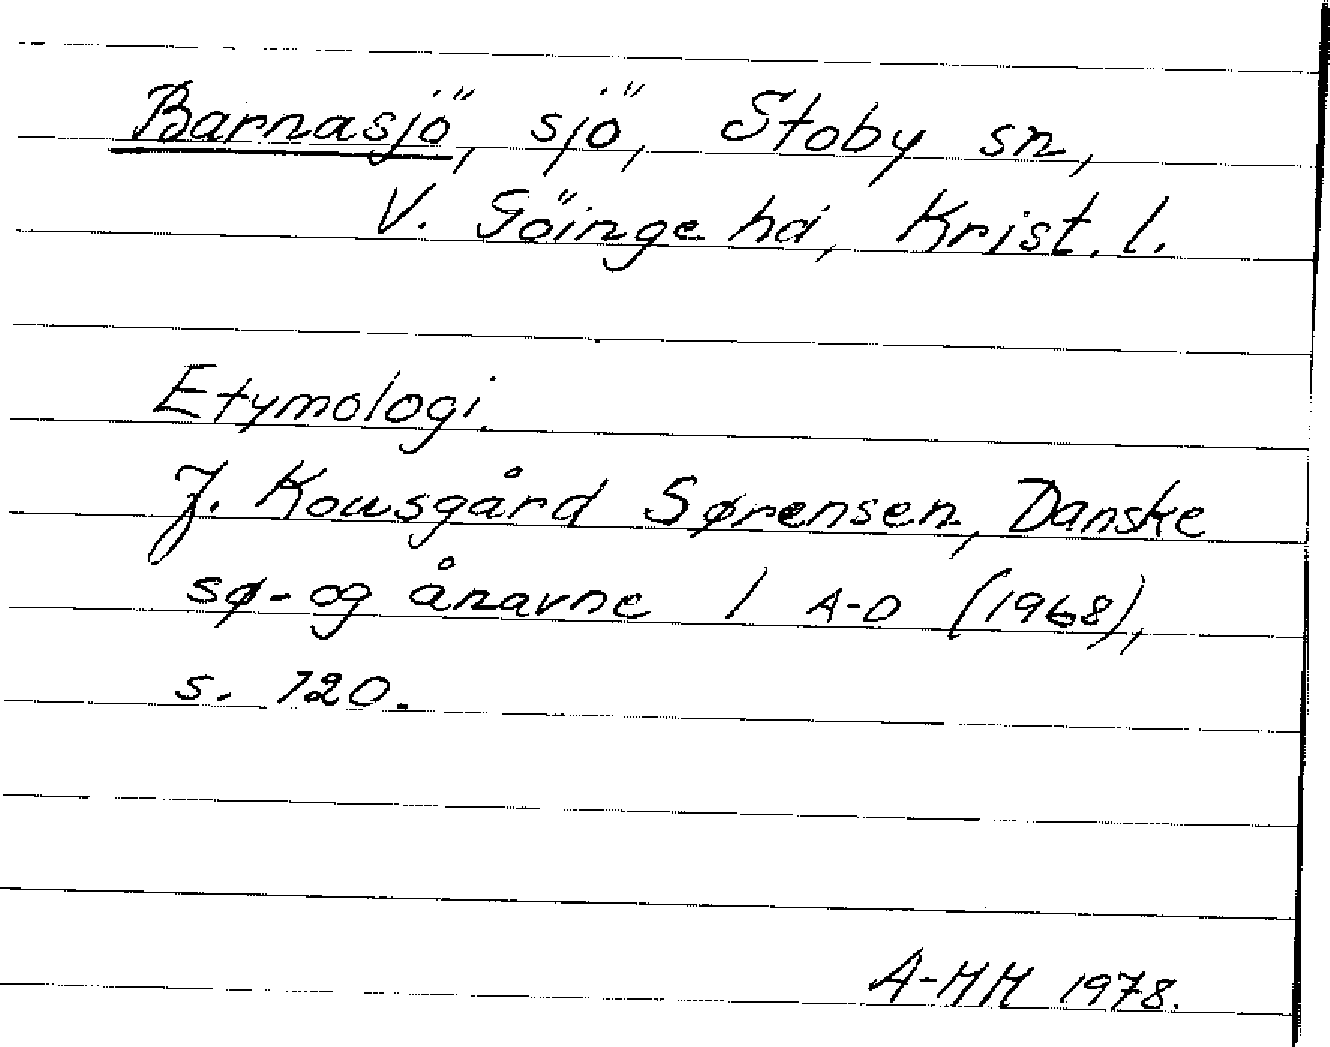 Barnasjö, sjö, Stoby sn,
V. Göinge hd, Krist. l.
Etymologi.
J. Kousgård Sørensen, Danske
sø- og ånavne 1 A-D (1968),
s. 120.
A-HH 1978.